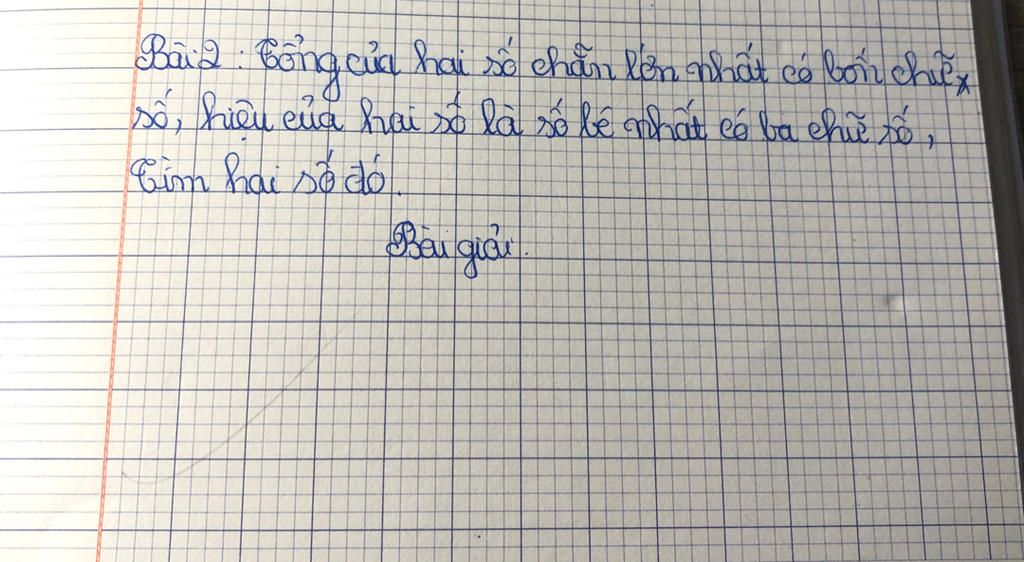 Bài 2: Tổng của hai số chẵn lớn nhất có bốn chữ
số, hiệu của hai số là số bé nhất có ba chữ số,
Tìm hai số đó.
Bài giải.